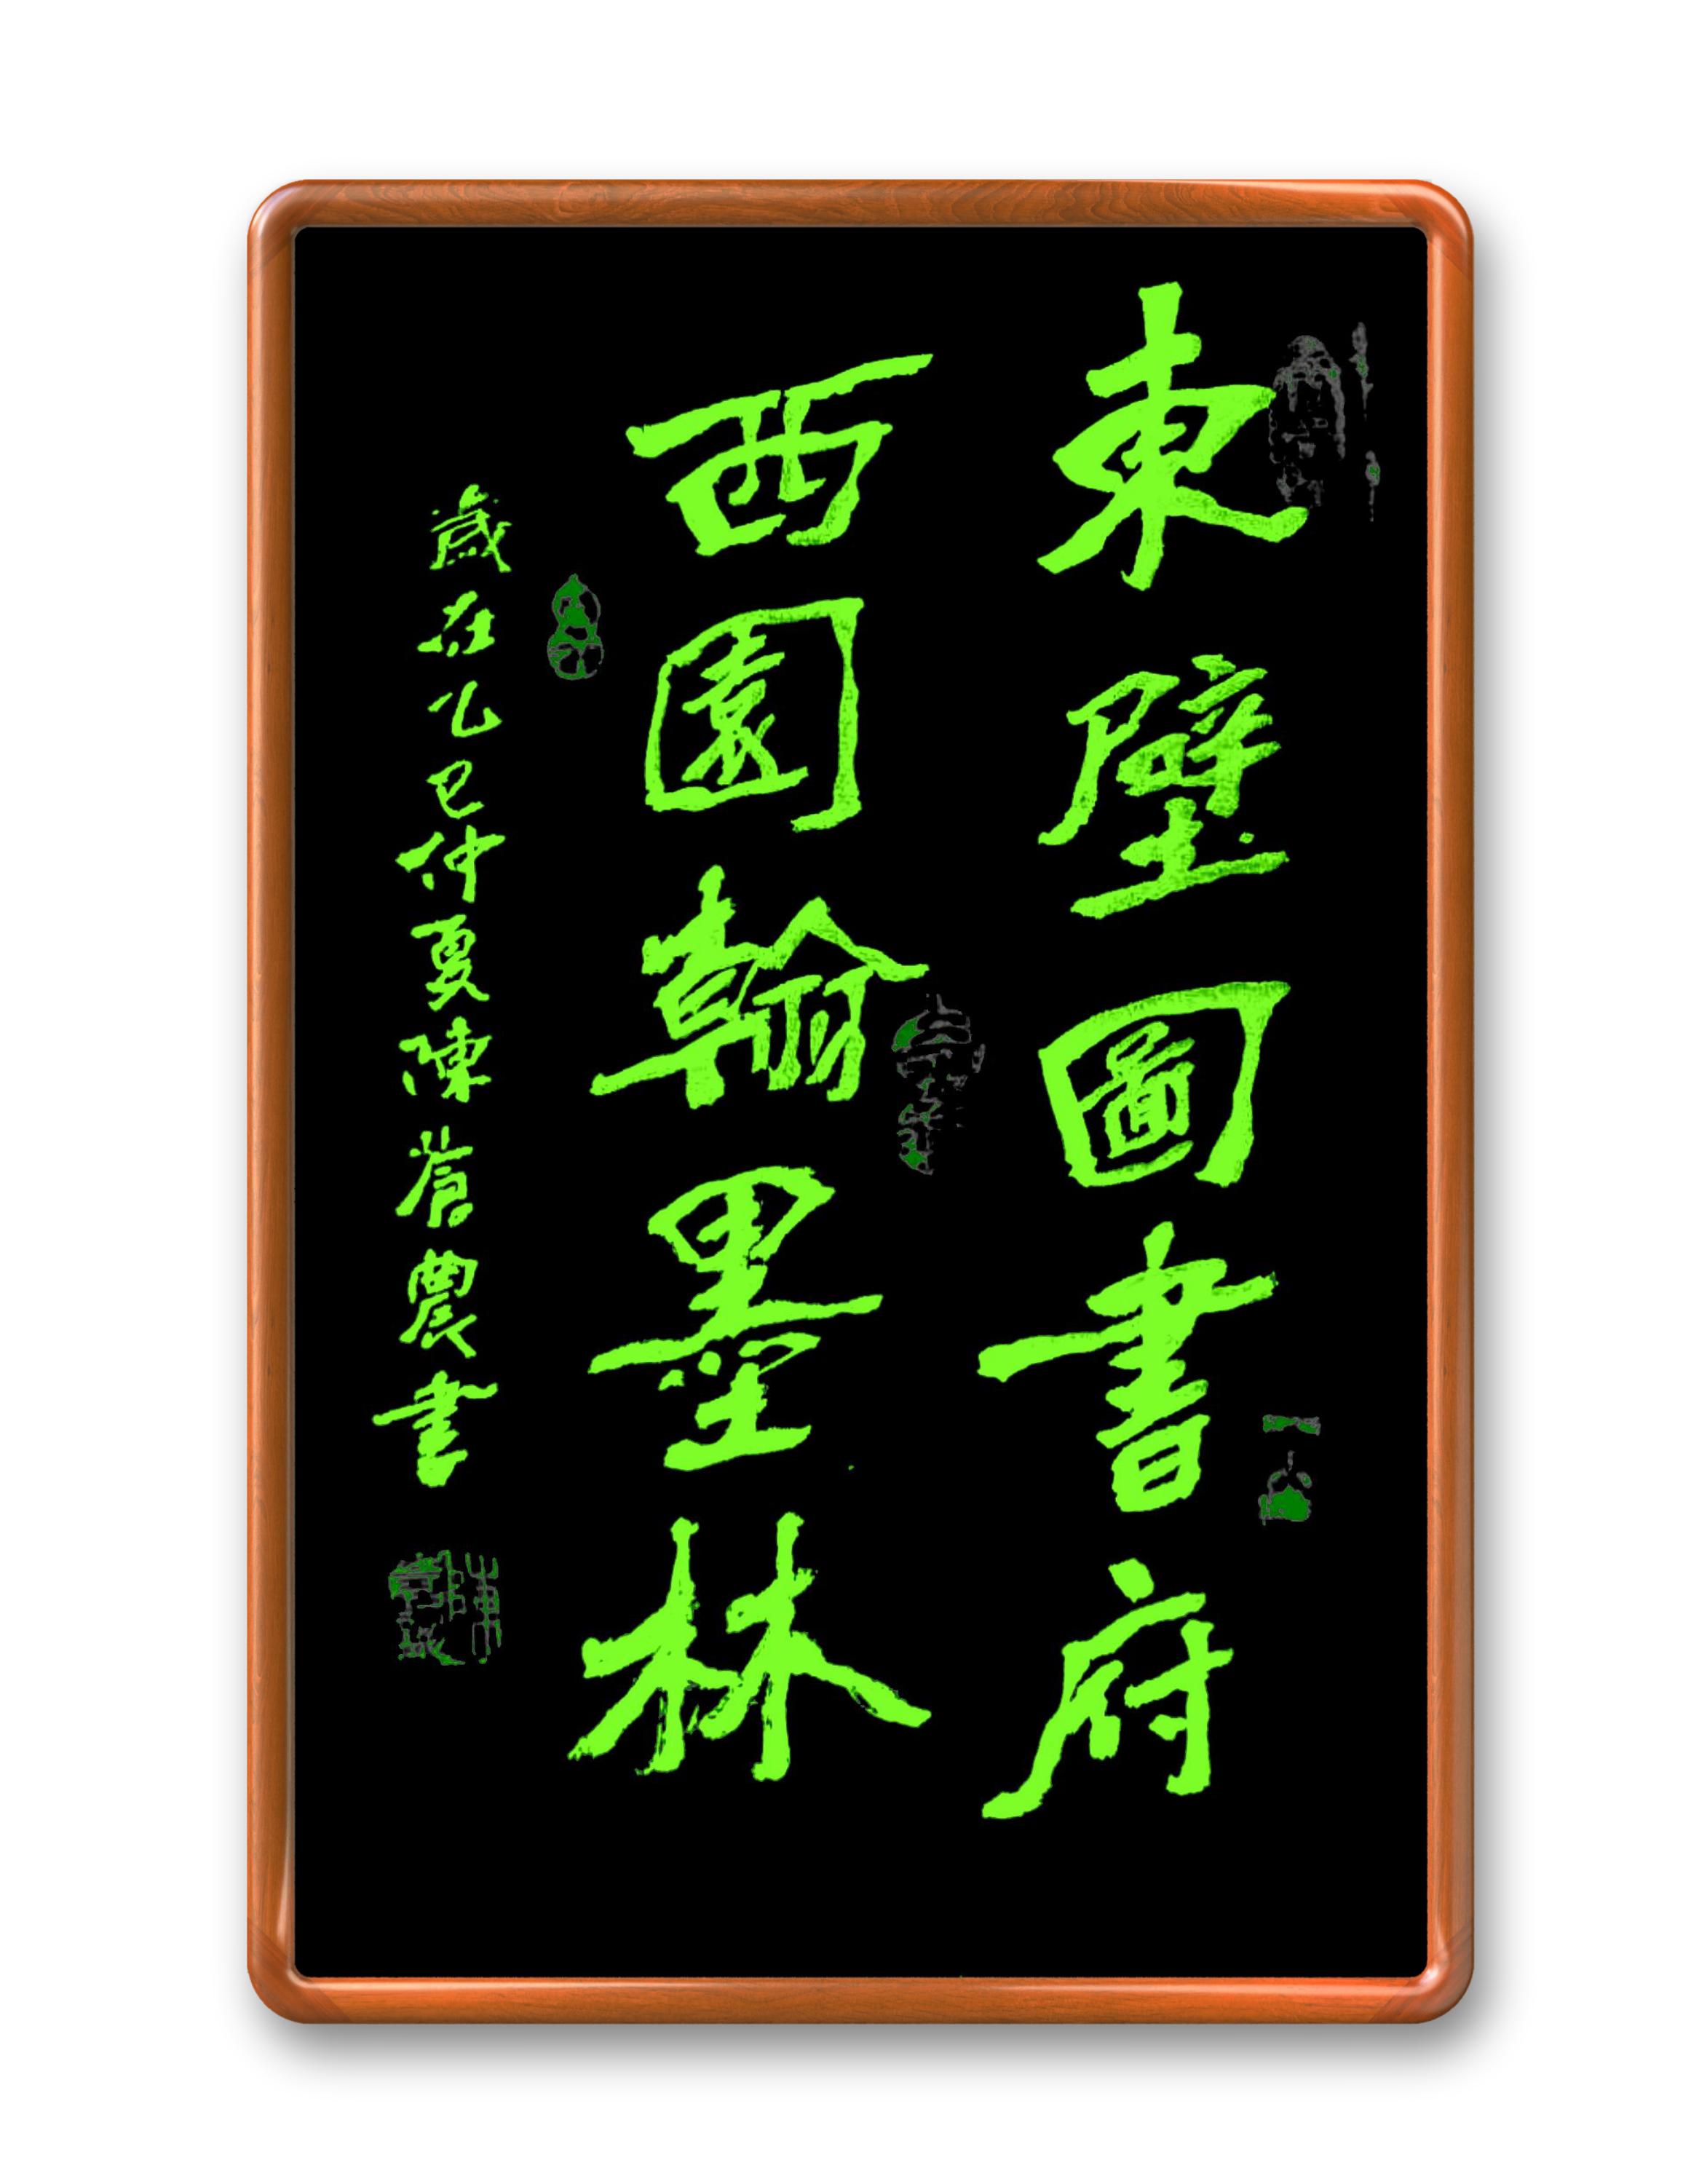 東壁圖書府
西園翰墨林
歲在乙巳仲夏陳蒼農書